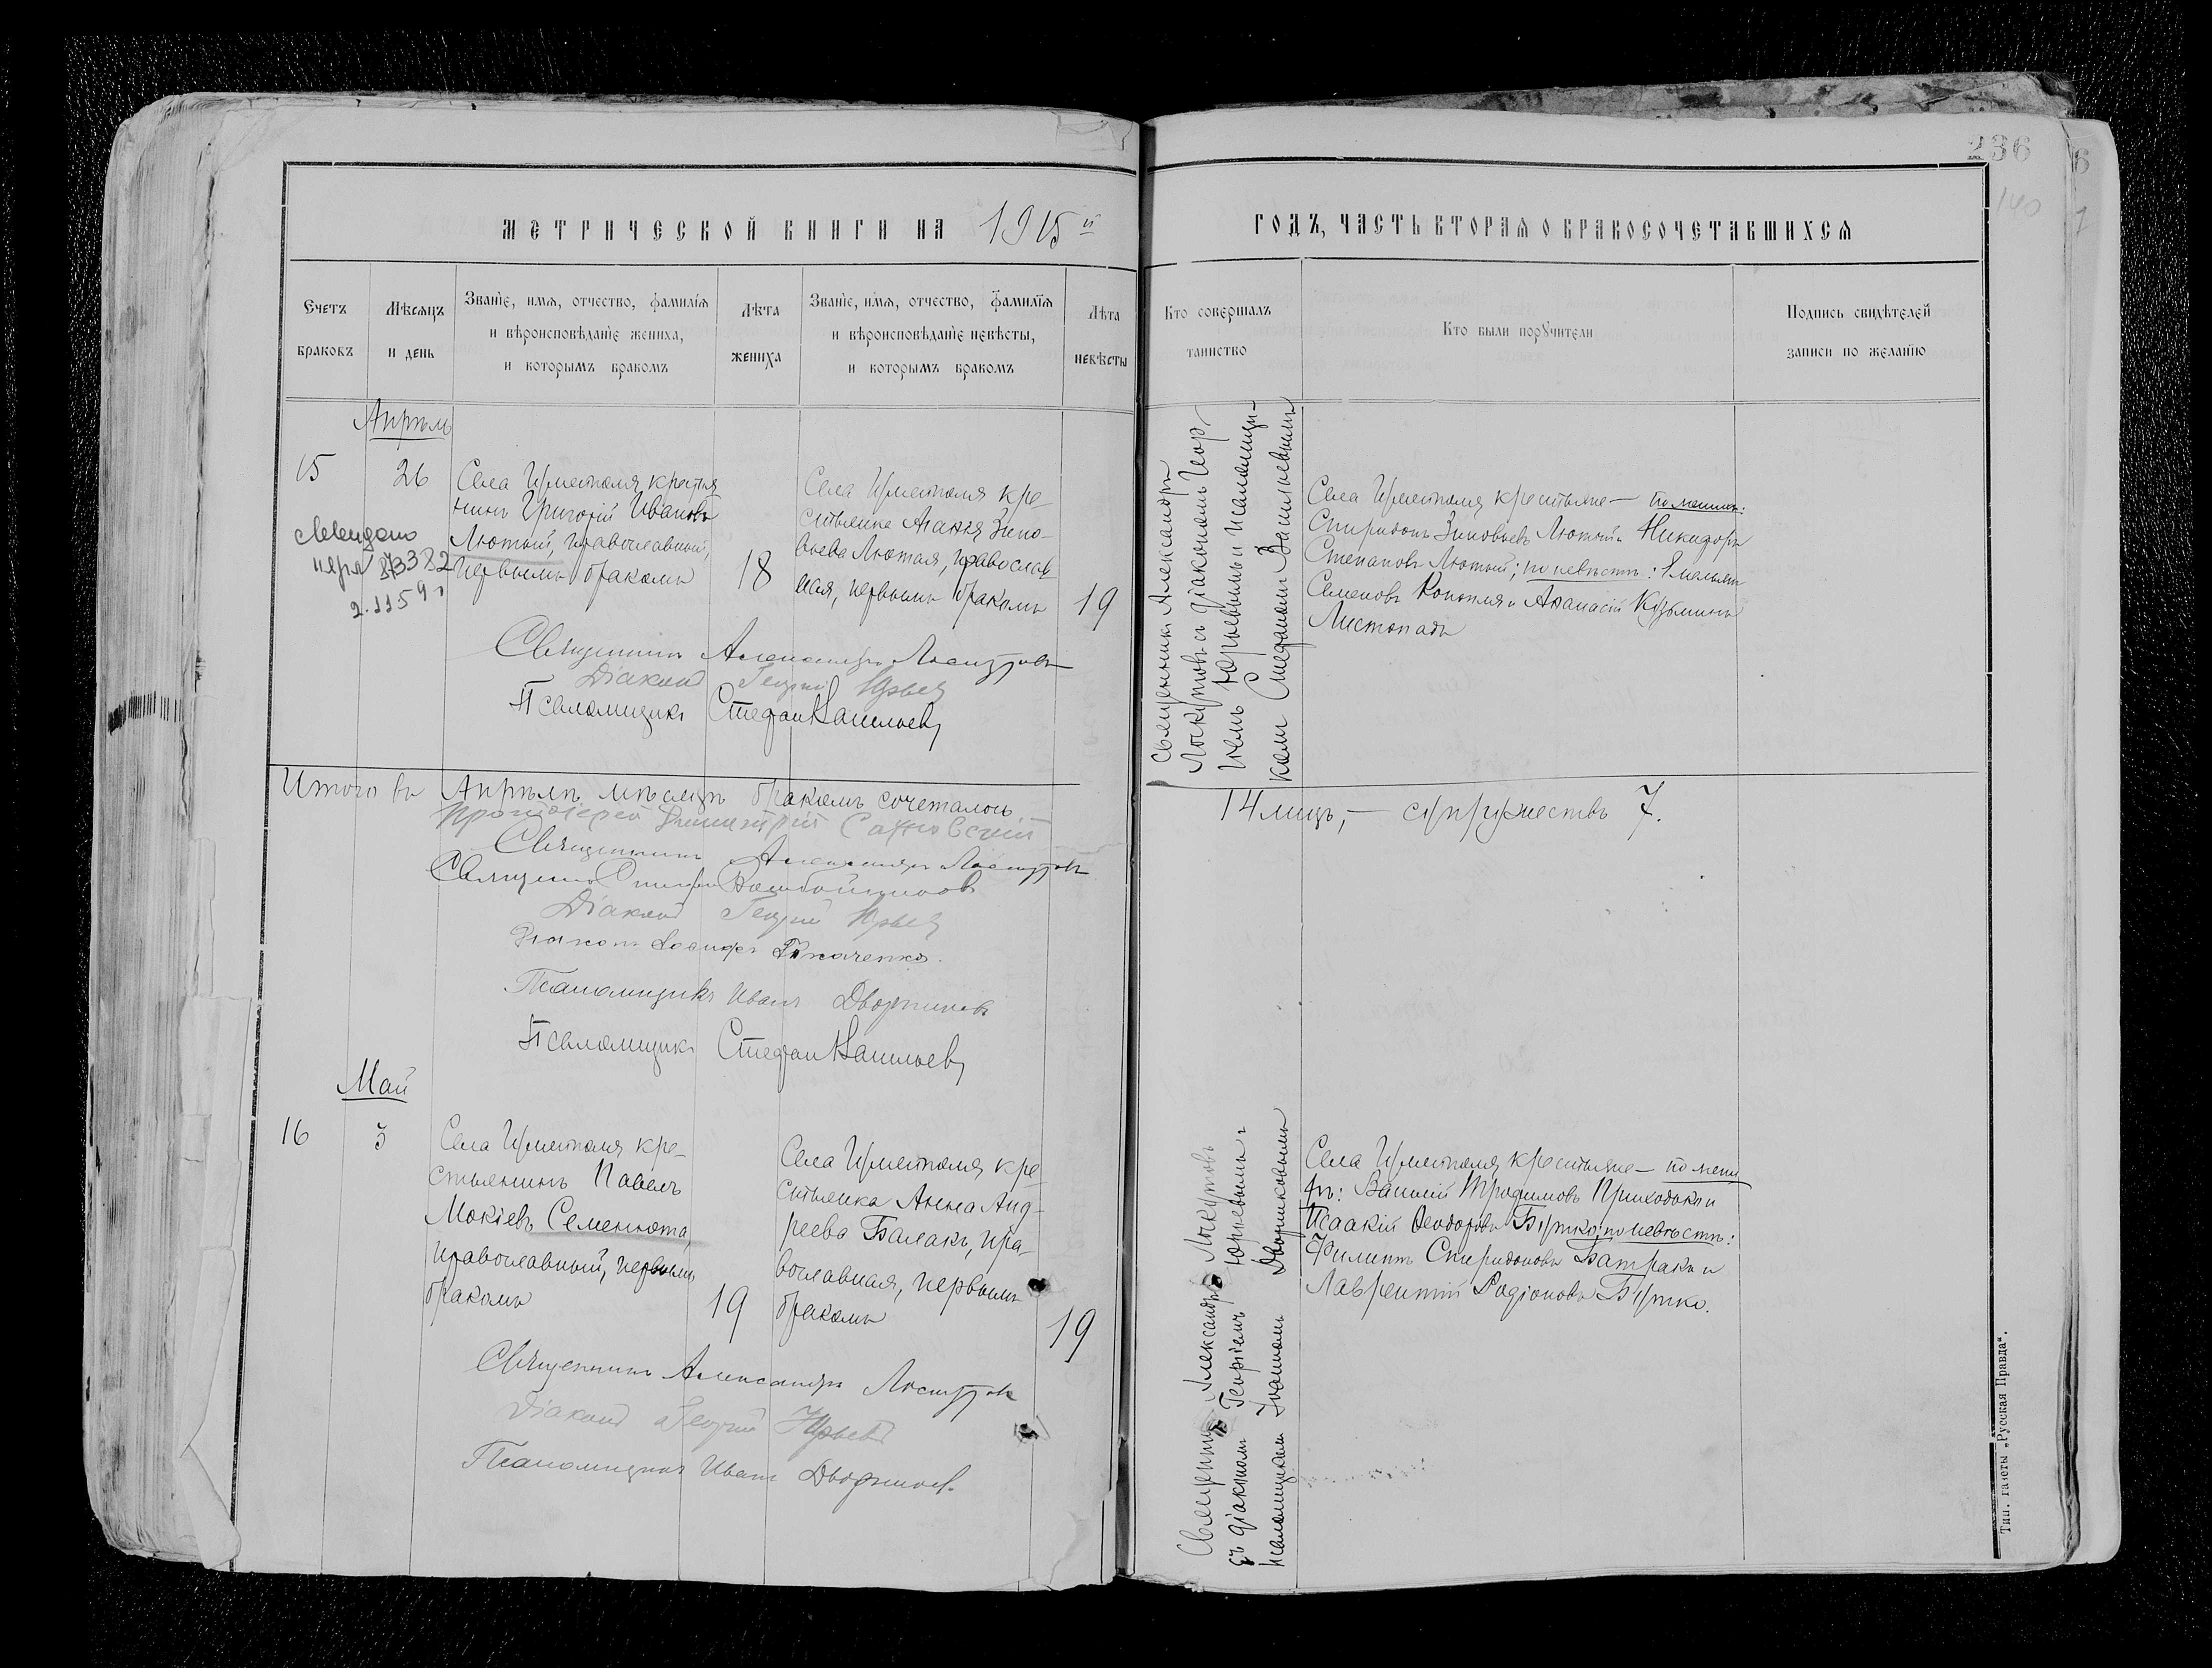 236
140
МЕТРИЧЕСКОЙ КНИГИ НА 1915й
ГОДЪ, ЧАСТЬ ВТОРАЯ О БРАКОСОЧЕТАВШИХСЯ
Счетъ браковъ
Мѣсяцъ и день
Званіе, имя, отчество, фамилія
и вѣроисповѣданіе жениха,
и которымъ бракомъ
Лѣта жениха
Званіе, имя, отчество, фамилія
и вѣроисповѣданіе невѣсты,
и которымъ бракомъ
Лѣта невѣсты
Кто совершалъ
таинство
Кто были поручители
Подпись свидѣтелей
записи по желанію
Апрѣль
15
26
Села крестья
нинъ Григорій Ивановъ
Лютый, православный,
первымъ бракомъ
18
Села кре-
стьянка Агафія Зино-
вьева Лютая, православ-
ная, первымъ бракомъ
19
Священникъ Александръ
Лоскутовъ съ діакономъ Геор-
гіемъ Юрьевымъ и псаломщи-
комъ Стефаномъ Васильевымъ
Села крестьяне — по жених:
Спиридонъ Зиновьевъ Лютый и Никифоръ
Степановъ Лютый; по невѣстѣ: Емельянъ
Семеновъ Конопля и Афанасій Кузьминъ
Листопадъ
Священникъ Александръ Лоскутовъ
Діаконъ Георгій Юрьевъ
Псаломщикъ Стефанъ Васильевъ
Итого въ Апрѣлѣ мѣсяцѣ бракомъ сочеталось
14 лицъ, — супружествъ 7.
Протоіерей Димитрій
Священникъ Александръ Лоскутовъ
Священникъ
Діаконъ Георгій Юрьевъ
Діаконъ Іосифъ Ткаченко.
Псаломщикъ Иванъ Дворниковъ
Псаломщикъ Стефанъ Васильевъ
Май
16
3
Села кре-
стьянинъ Павелъ
Мокіевъ Семенюта,
православный, первымъ
бракомъ
19
Села кре-
стьянка Анна Анд-
реева Балакъ, пра-
вославная, первымъ
бракомъ
19
Священникъ Александръ Лоскутовъ
съ діакономъ Георгіемъ Юрьевымъ и
псаломщикомъ Іоанномъ Дворниковымъ
Села крестьяне — по жени
хѣ: Василій Трофимовъ Приходько и
Исаакій Феодоровъ Бутко; по невѣстѣ:
Филиппъ Спиридоновъ Батракъ и
Лаврентій Родіоновъ Бутко.
Священникъ Александръ Лоскутовъ
Діаконъ Георгій Юрьевъ
Псаломщикъ Иванъ Дворниковъ
Тип. газеты „Русская Правда“.